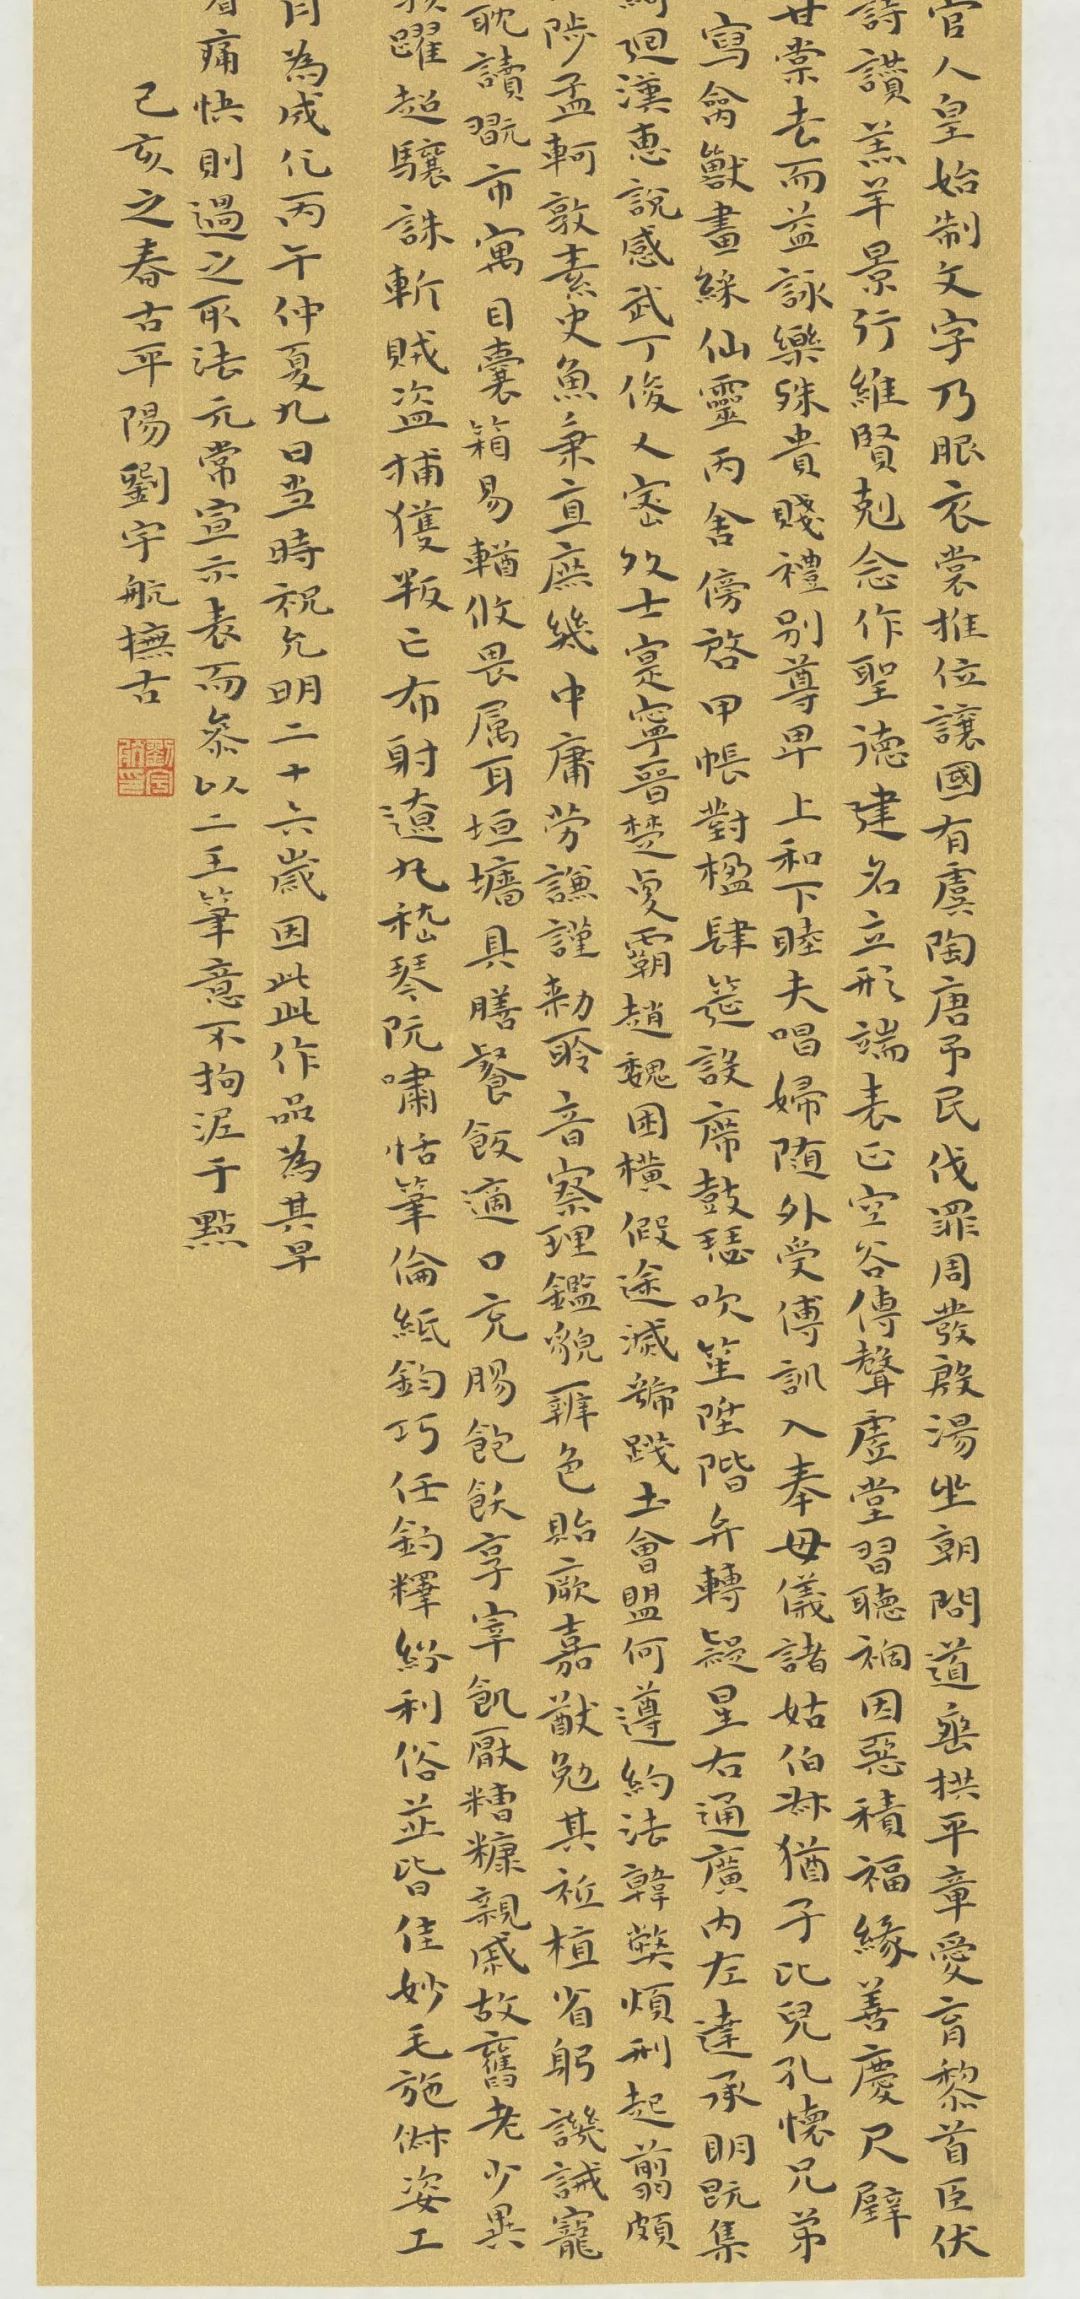 官人皇始制文字乃服衣裳推位讓國有虞陶唐弔民伐罪周發殷湯坐朝問道垂拱平章愛育黎首臣伏
詩讚羔羊景行維賢剋念作聖德建名立形端表正空谷傳聲虛堂習聽禍因惡積福緣善慶尺璧
甘棠去而益詠樂殊貴賤禮別尊卑上和下睦夫唱婦随外受傅訓入奉母儀諸姑伯叔猶子比兒孔懷兄弟
寫禽獸畫綵仙靈丙舍傍啓甲帳對楹肆筵設席鼓瑟吹笙陞階弁轉疑星右通廣內左達承明既集
迴漢惠說感武丁俊乂密勿士寔寧晉楚更霸趙魏困橫假途滅虢踐土會盟何遵約法韓弊煩刑起翦頗
陟孟軻敦素史魚秉直庶幾中庸勞謙謹勑聆音察理鑑貌辨色貽厥嘉猷勉其祗植省躬譏誡寵
耽讀翫市寓目囊箱易輶攸畏属耳垣牆具膳餐飯適口充腸飽飫享宰飢厭糟糠親戚故舊老少異
躍超驤誅斬賊盗捕獲叛亡布射遼丸嵇琴阮嘯恬筆倫紙鈞巧任釣釋紛利俗並皆佳妙毛施淑姿工
月為成化丙午仲夏九日当時祝允明二十六歲因此此作品為其早
痛快則過之取法元常宣示表而參以二王筆意不拘泥于點
己亥之春古平陽劉宇航撫古
劉宇航印